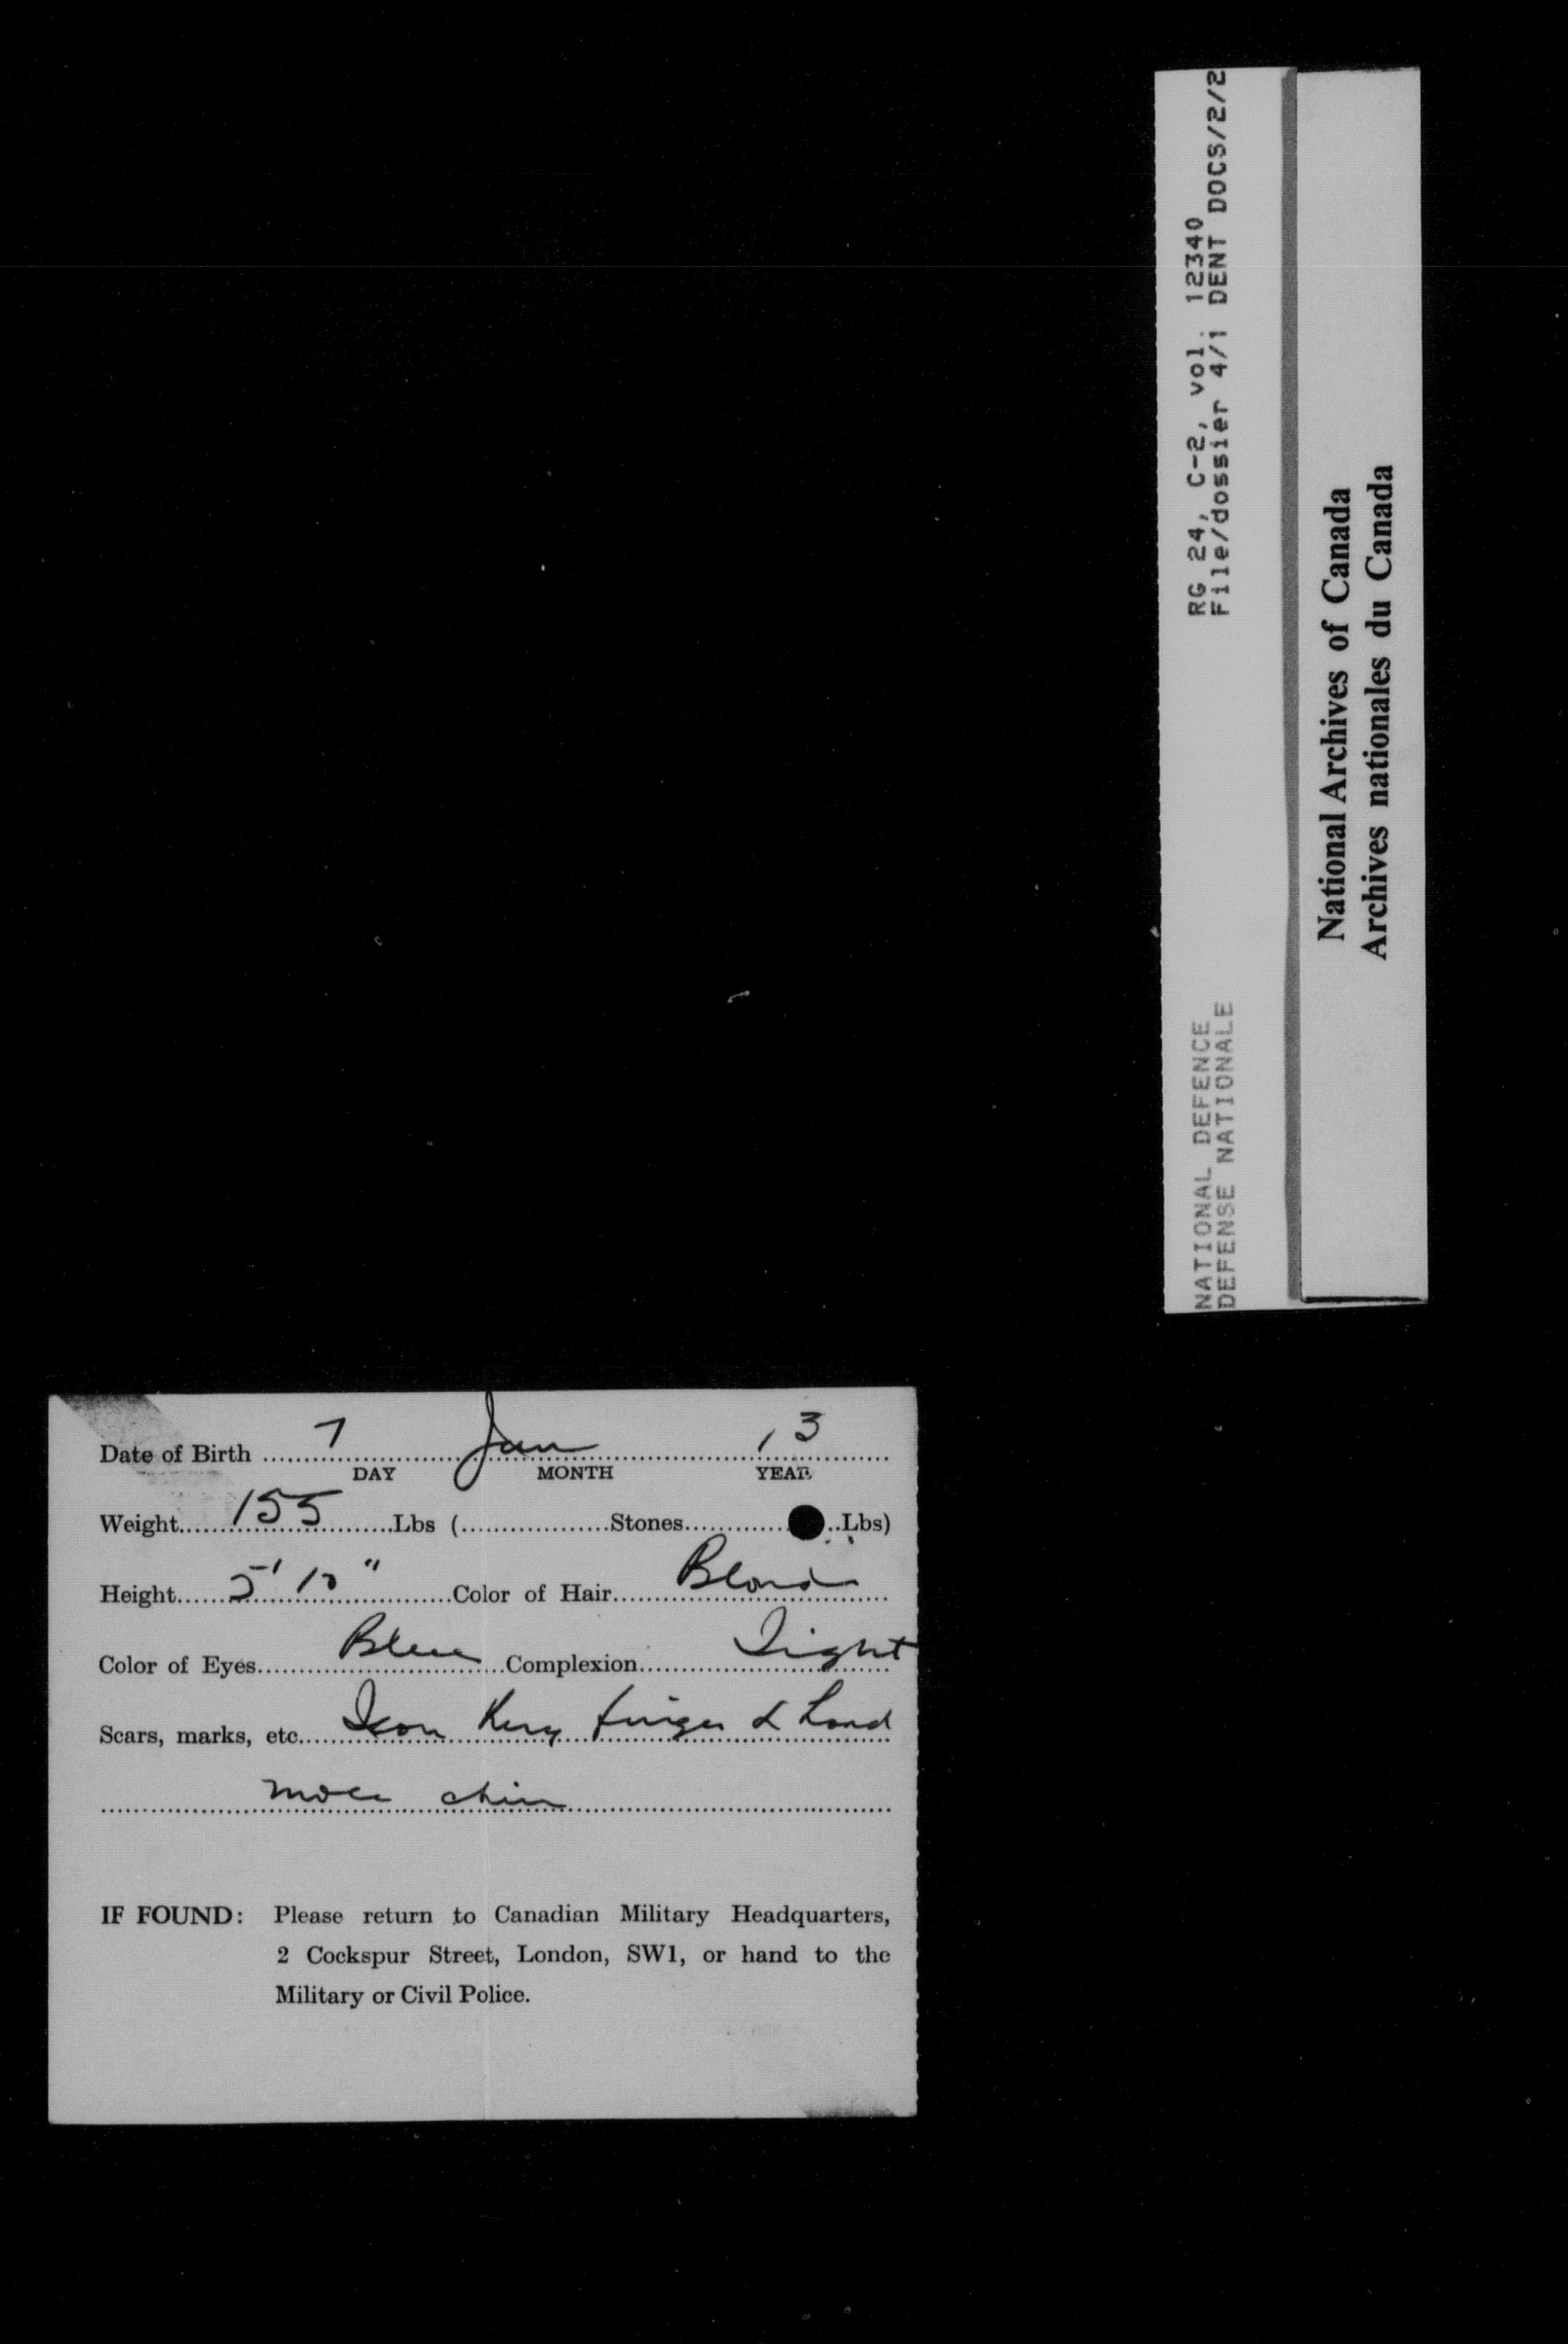 RG 24, C-2, vol. 12340
File/dossier 4/1 DENT DOCS/2/2
NATIONAL DEFENCE
DEFENSE NATIONALE
National Archives of Canada
Archives nationales du Canada
Date of Birth 7 Jan 13
DAY MONTH YEAR
Weight 155 Lbs ( Stones Lbs)
Height 5' 10" Color of Hair Blond
Color of Eyes Blue Complexion Light
Scars, marks, etc. finger L hand
mole chin
IF FOUND: Please return to Canadian Military Headquarters,
2 Cockspur Street, London, SW1, or hand to the
Military or Civil Police.